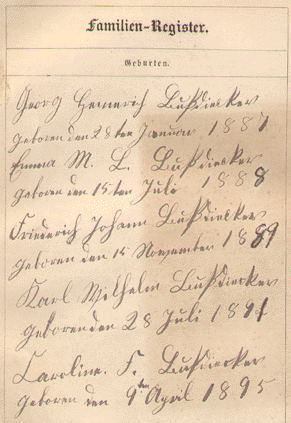 Familien-Register.
Geburten.
Georg Heinerich Bußdiecker
Geboren den 28ten Januar 1887
Emma M. L. Bußdiecker
Geboren den 15ten Juli 1888
Friederich Johann Bußdiecker
Geboren den 15 November 1889
Karl Wilhelm Bußdiecker
Geboren den 28 Juli 1891
Caroline. F. Bußdiecker
Geboren den 9ten April 1895